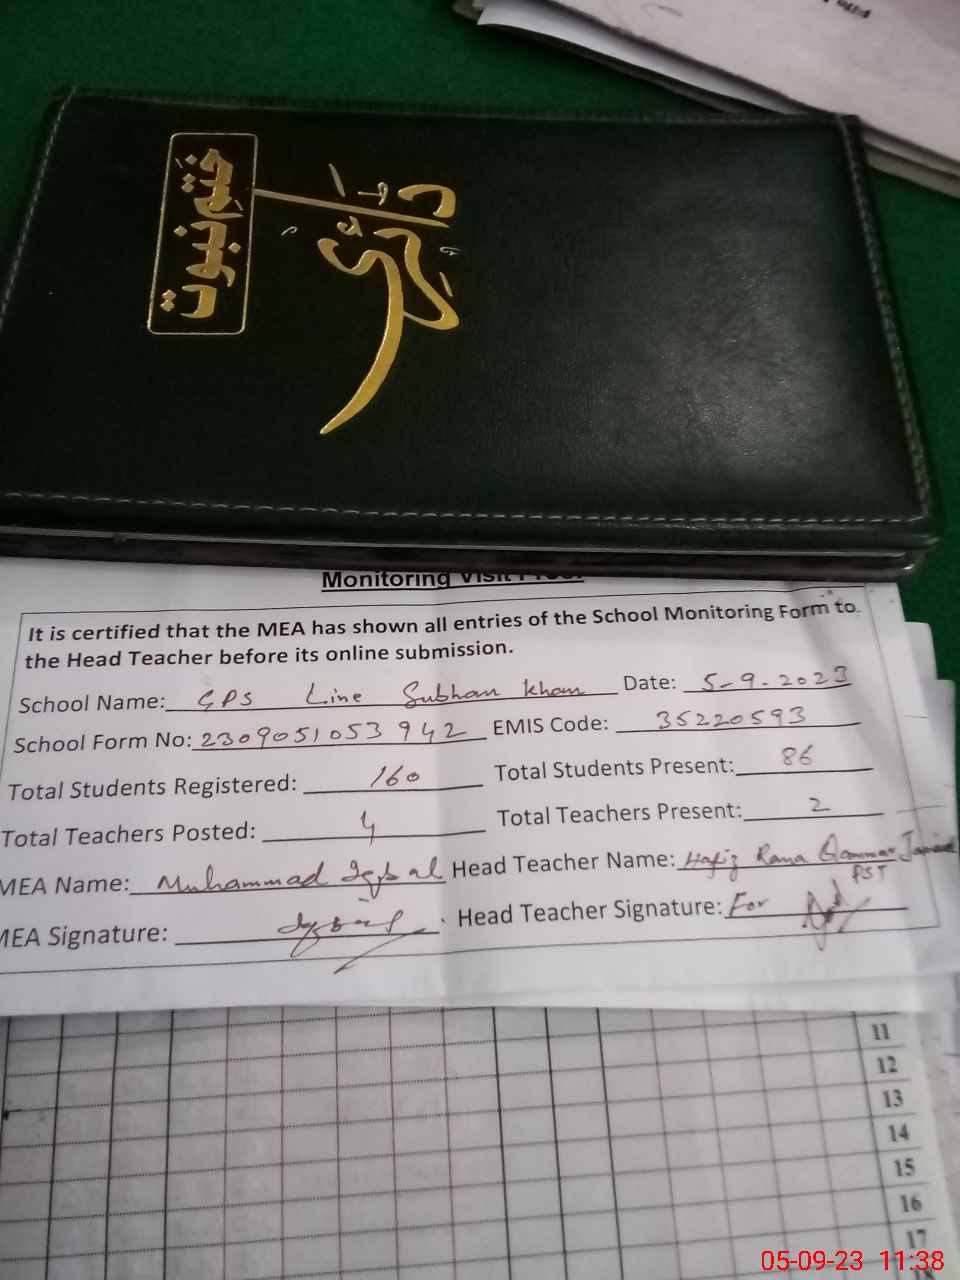 ختم نبوت
ڈائری
Monitoring Visit Proof
It is certified that the MEA has shown all entries of the School Monitoring Form to
the Head Teacher before its online submission.
School Name: GPS Line Subhan Khan Date: 5-9-2023
School Form No: 2309051053942 EMIS Code: 35220593
Total Students Registered: 160 Total Students Present: 86
Total Teachers Posted: 4 Total Teachers Present: 2
MEA Name: Muhammad Iqbal Head Teacher Name: Hafiz Rana Qammar
PST
MEA Signature: Iqbal Head Teacher Signature: For
11
12
13
14
15
16
17
05-09-23 11:38